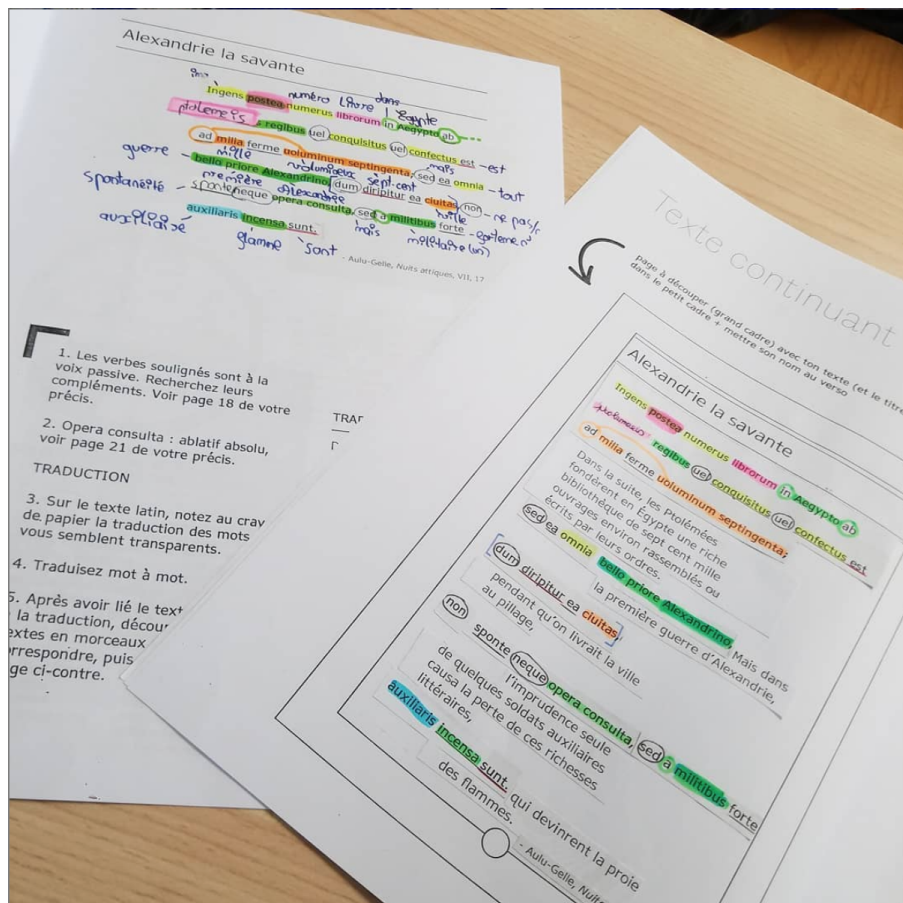 Alexandrie la savante
numéro Livre dans
Egypte
Ingens postea numerus librorum in Aegypto ab
ptolemeis regibus uel conquisitus uel confectus est – est
ad milia ferme uoluminum septingenta, sed ea omnia – tout
mille volumineux sept-cent mais
guerre – bello priore Alexandrino, dum diripitur ea ciuitas, non – ne pas
première Alexandrie ville
spontanéité – sponte neque opera consulta, sed a militibus forte
auxiliaris incensa sunt. mais militaire
auxiliairé flamme sont
- Aulu-Gelle, Nuits attiques, VII, 17
1. Les verbes soulignés sont à la
voix passive. Recherchez leurs
compléments. Voir page 18 de votre
précis.
2. Opera consulta : ablatif absolu,
voir page 21 de votre précis.
TRADUCTION
3. Sur le texte latin, notez au
de papier la traduction des mots
vous semblent transparents.
4. Traduisez mot à mot.
5. Après avoir lié le
la traduction,
en morceaux
puis
ci-contre.
Texte continuant
page à découper (grand cadre) avec ton texte (et le titre
dans le petit cadre + mettre son nom au verso
Alexandrie la savante
Ingens postea numerus librorum in Aegypto ab
regibus uel conquisitus uel confectus est
ad milia ferme uoluminum septingenta,
Dans la suite, les Ptolémées
fondèrent en Égypte une riche
bibliothèque de sept cent mille
ouvrages environ rassemblés ou
écrits par leurs ordres.
sed ea omnia bello priore Alexandrino, Mais dans
la première guerre d'Alexandrie,
dum diripitur ea ciuitas,
pendant qu'on livrait la ville
au pillage,
non sponte neque opera consulta, sed a militibus forte
l'imprudence seule
de quelques soldats auxiliaires
causa la perte de ces richesses
littéraires,
auxiliaris incensa sunt. qui devinrent la proie
des flammes.
- Aulu-Gelle,